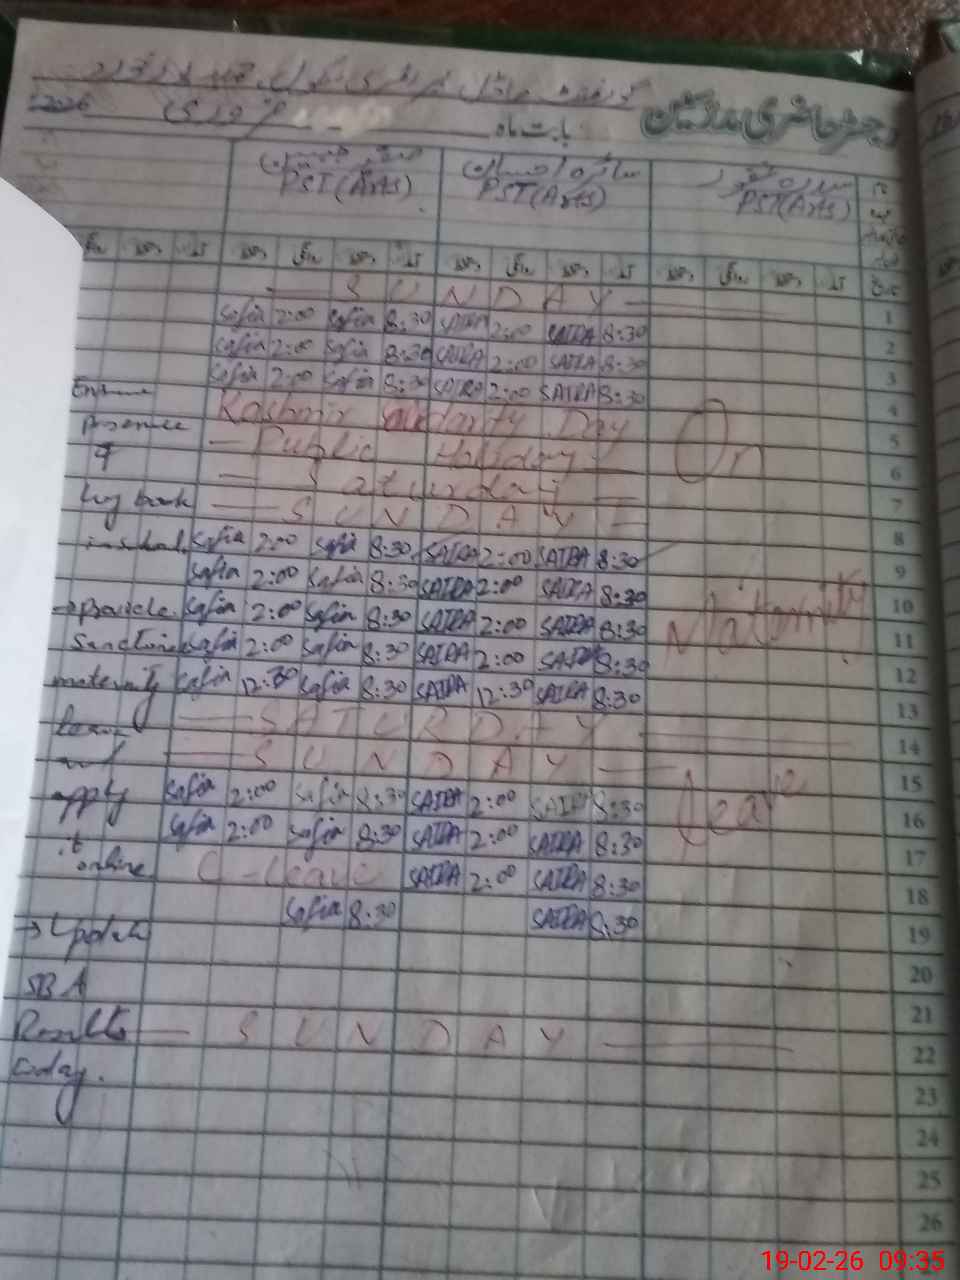 رجسٹر حاضری مدرسین
بابت ماہ فروری 2026
PST(Arts) PST(Arts) PST(Arts)
SUNDAY 1
Safia 2:00 Safia 8:30 SAIRA 2:00 SAIRA 8:30 2
Safia 2:00 Safia 8:30 SAIRA 2:00 SAIRA 8:30 3
Safia 2:00 Safia 8:30 SAIRA 2:00 SAIRA 8:30 4
Kashmir Solidarity Day 5
Public Holiday 6
Saturday 7
SUNDAY 8
Safia 2:00 Safia 8:30 SAIRA 2:00 SAIRA 8:30 9
Safia 2:00 Safia 8:30 SAIRA 2:00 SAIRA 8:30 10
Safia 2:00 Safia 8:30 SAIRA 2:00 SAIRA 8:30 11
Safia 2:00 Safia 8:30 SAIRA 2:00 SAIRA 8:30 12
Safia 12:30 Safia 8:30 SAIRA 12:30 SAIRA 8:30 13
SATURDAY 14
SUNDAY 15
Safia 2:00 Safia 8:30 SAIRA 2:00 SAIRA 8:30 16
Safia 2:00 Safia 8:30 SAIRA 2:00 SAIRA 8:30 17
C-Leave SAIRA 2:00 SAIRA 8:30 18
Safia 8:30 SAIRA 8:30 19
20
21
SUNDAY 22
23
24
25
26
On
Maternity
Leave
Ensure
presence
of
log book
in school.
→ provide
Sanction
maternity
leave
apply
it
online
→ Update
SBA
Results
today.
19-02-26 09:35